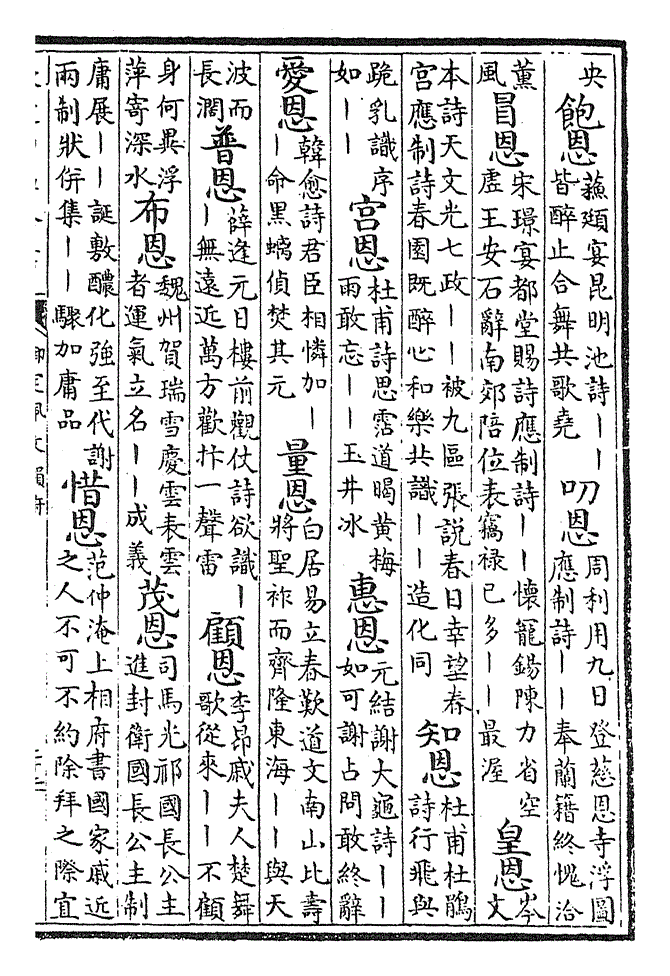 央飽恩蘇頲宴昆明池詩丨丨皆醉止合舞共歌堯叨恩周利用九日登慈恩寺浮圖應制詩丨丨奉蘭籍終愧洽
薰風冒恩宋璟宴都堂賜詩應制詩丨丨懷寵錫陳力省空虛王安石辭南郊陪位表竊祿已多丨丨最渥皇恩岑文
本詩天文光七政丨丨被九區張說春日幸望春宮應制詩春園既醉心和樂共識丨丨造化同知恩杜甫杜鵑詩行飛與
跪乳識序如丨丨宮恩杜甫詩思霑道暍黃梅雨敢忘丨丨玉井冰惠恩元結謝大龜詩丨丨如可謝占問敢終辭
愛恩韓愈詩君臣相憐加丨丨命黑螭偵焚其元量恩白居易立春歎道文南山比壽將聖祚而齊隆東海丨丨與天
波而長濶普恩薛逢元日樓前觀仗詩欲識丨丨無遠近萬方歡忭一聲雷顧恩李昂戚夫人楚舞歌從來丨丨不顧
身何異浮萍寄深水布恩魏州賀瑞雪慶雲表雲者運氣立名丨丨成義茂恩司馬光祁國長公主進封衛國長公主制
庸展丨丨誕敷醲化強至代謝兩制狀併集丨丨驟加庸品惜恩范仲淹上相府書國家戚近之人不可不約除拜之際宜